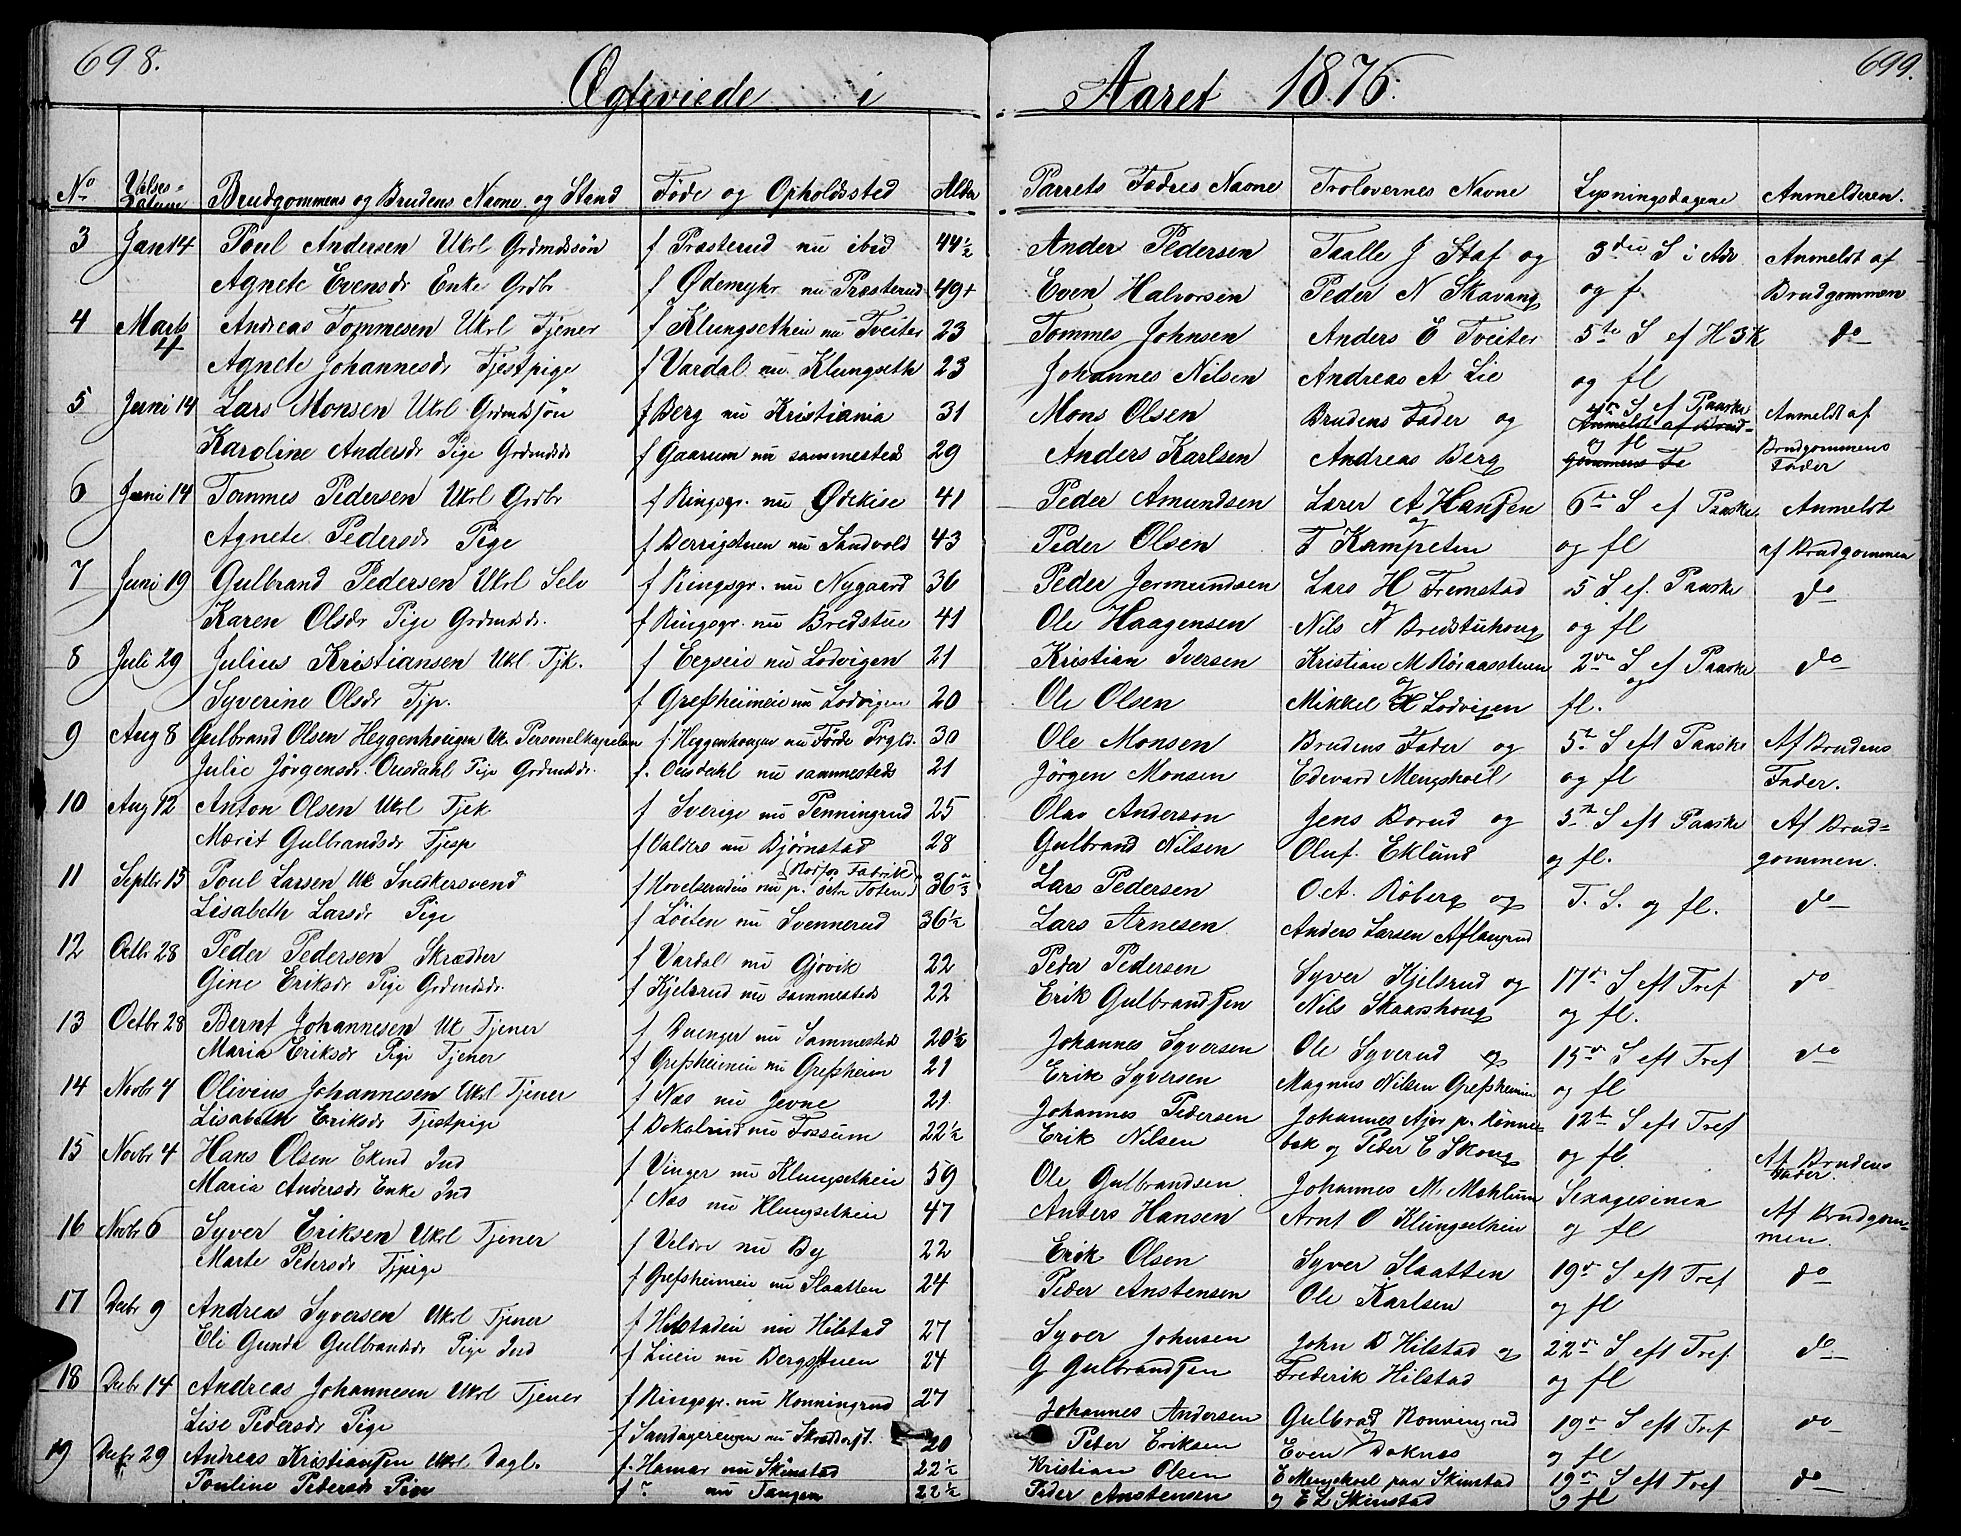 698.
Ægteviede i
Aaret 1876.
699.
No Vielses-Datum Brudgommens og Brudens Navne og Stand Føde og Opholdssted Alder Parrets Fædres Navne Trolovernes Navne Lysningsdagene Anmelderen.
3 Jan 14 Poul Andersen Ukrl Grdmdssøn f Præsterud nu ibid 44½ Ander Pedersen Taalle J Staf og 3die S i Adv Anmeldt af
Agnete Evensdr Enke Grdbr f Ødemyhr nu Præsterud 49+ Even Halvorsen Peder N Skavang og f Brudgommen
4 Marts 4 Andreas Tommesen Ukrl Tjener f Klungsetheie nu Tveiter 23 Tommes Johnsen Anders E Tveiter 5te S ef H 3 K do
Agnete Johannesdr Tjestpige f Vardal nu Klungseth 23 Johannes Nilsen Andreas A Lie og fl
5 Juni 14 Lars Monsen Ukrl Grdmdsøn f Berg nu Kristiania 31 Mons Olsen Brudens Fader og S ef Paaske Anmeldt af
Anmeldt af Brud-
Karoline Andersdr Pige Grdmdsdr f Gaarum nu sammesteds 29 Anders Karlsen Andreas Berg og fl Brudgommens
gommens Fa Fader
6 Juni 14 Tommes Pedersen Ukrl Grdbr f Ringsgr. nu Ødekise 41 Peder Amundsen Lærer A Hansen 6te S ef Paaske Anmeldt
Agnete Pedersdr Pige f Berrigstuen nu Sandvold 43 Peder Olsen og F Kampeten og fl af Brudgommen
7 Juni 19 Gulbrand Pedersen Ukrl Selv f Ringsgr. nu Nygaard 36 Peder Jermundsen Lars H Fremstad 5 S ef. Paaske do
Karen Olsdr Pige Grdmdsdr. f Ringsgr. nu Bredstue 41 Ole Haagensen og Nils N Bredstuhoug og fl
8 Juli 29 Julius Kristiansen Ukl Tjk. f Eegseie nu Lodvigen 21 Kristian Iversen Kristian M Røraasstuen 2den S ef Paaske do
Syverine Olsdr Tjp. f Grefsheimeie nu Lodvigen 20 Ole Olsen og Mikkel H Lodvigen og fl.
9 Aug 8 Gulbrand Olsen Heggenhougen Uk Personelkapelan f Heggenhougen nu Førde Prgld. 30 Ole Monsen Brudens Fader og 5te S eft Paaske Af Brudens
Julie Jörgensdr. Ousdahl Pige Grdmdsdr. f. Ousdahl nu sammesteds 21 Jörgen Monsen Edevard Mengshoel og fl Fader.
10 Aug 12 Anton Olsen Ukrl Tjek f Sverige nu Penningrud 25 Olav Anderson Jens Borud og 5te S eft Paaske Af Brud-
Mærit Gulbrandsdr Tjesp f Valdres nu Bjørnstad 28 Gulbrand Nilsen Oluf. Eklund og fl. gommen.
11 Septbr 15 Poul Larsen Uk Snedkersvend f Hovelsrudeie nu p. østr Toten 36 Lars Pedersen O.A. Röberg og T. S. og fl. do
Lisabeth Larsdr Pige f Löiten nu Svennerud 36½ Lars Arnesen Anders Larsen Aflangrud
12 Octbr 28 Peder Pedersen Skrædder f Vardal nu Gjovik 22 Peder Pedersen Syver Kjelsrud og 17de S eft Tref do
Gine Eriksdr Pige Grdmdsdr. f Kjelsrud nu sammesteds 22 Erik Gulbrandsen Nils Skaarshoug og fl.
13 Octbr 28 Bernt Johannesen Uk Tjener f nu Sammesteds 20½ Johannes Syversen Ole Syverud og 15de S eft Tref do
Maria Eriksdr Pige Tjener f Grefsheimeie nu Grefsheim 21 Erik Syversen Magnus Nilsen Grefsheimeie og fl
14 Novbr 4 Olivius Johannesen Ukrl Tjener f Næs nu Jevne 21 Johannes Pedersen Johannes Ajer p. Rønne- 12te S eft Tref
Lisabeth Eriksdr Tjestpige f Bokalrud nu Fossum 22½ Erik Nilsen bæk og Peder E Skoug og fl. Af Brudens
Fader.
15 Novbr 4 Hans Olsen Ekmd Ind f Vinger nu Klungsetheie 59 Ole Gulbrandsen Johannes M. Mæhlum Sexagesima Af Brudgom-
Maria Andersdr Enke Ind f Næs nu Klungsetheie 47 Anders Hansen Arnt O Klungsetheie og fl men.
16 Novbr 6 Syver Eriksen Ukrl Tjener f Veldre nu By 22 Erik Olsen Syver Slaatten 19de S eft Tref do
Marte Pedersdr Tjpige f Grefsheimeie nu Slaatten 24 Peder Anstensen Ole Karlsen og fl
17 Decbr 9 Andreas Syversen Ukrl Tjener f Hilstadeie nu Hilstad 27 Syver Johnsen John D Hilstad og 22de S eft Tref do
Eli Gunda Gulbrandsdr Pige Ind f Lieeie nu Bergstuen 24 G Gulbrandsen Frederik Hilstad og fl
18 Decbr 14 Andreas Johannesen Ukrl Tjener f Ringsgr. nu Konningrud 27 Johannes Andersen Gulbrad Konningrud 19de S eft Tref do
Lise Pedersdr Pige f Sandagerengen nu 20 Peder Eriksen og Even Doknæs og fl
19 Decbr 29 Andreas Kristiansen Ukrl Dagl. f. Hamar nu Skinstad 22½ Kristian Olsen E Mengshoel paa Skinstad 19de S eft Tref do
Pouline Pedersdr Pige f " nu Tangen 22½ Peder Anstensen og E L Skinstad og fl